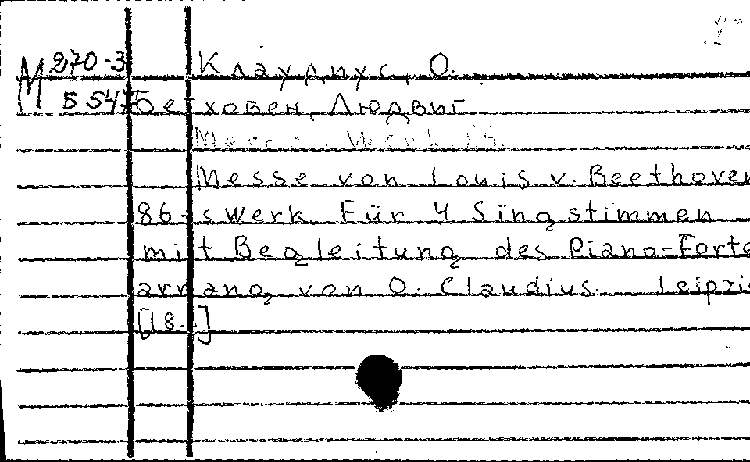 М 270-3 Клаудиус, О.
5547 Бетховен, Людвиг
Messe von Louis v. Beethoven
86-s Werk. Für 4 Singstimmen
mit Begleitung des Piano-Forte
arrang. von O. Claudius. Leipzig
[18..]